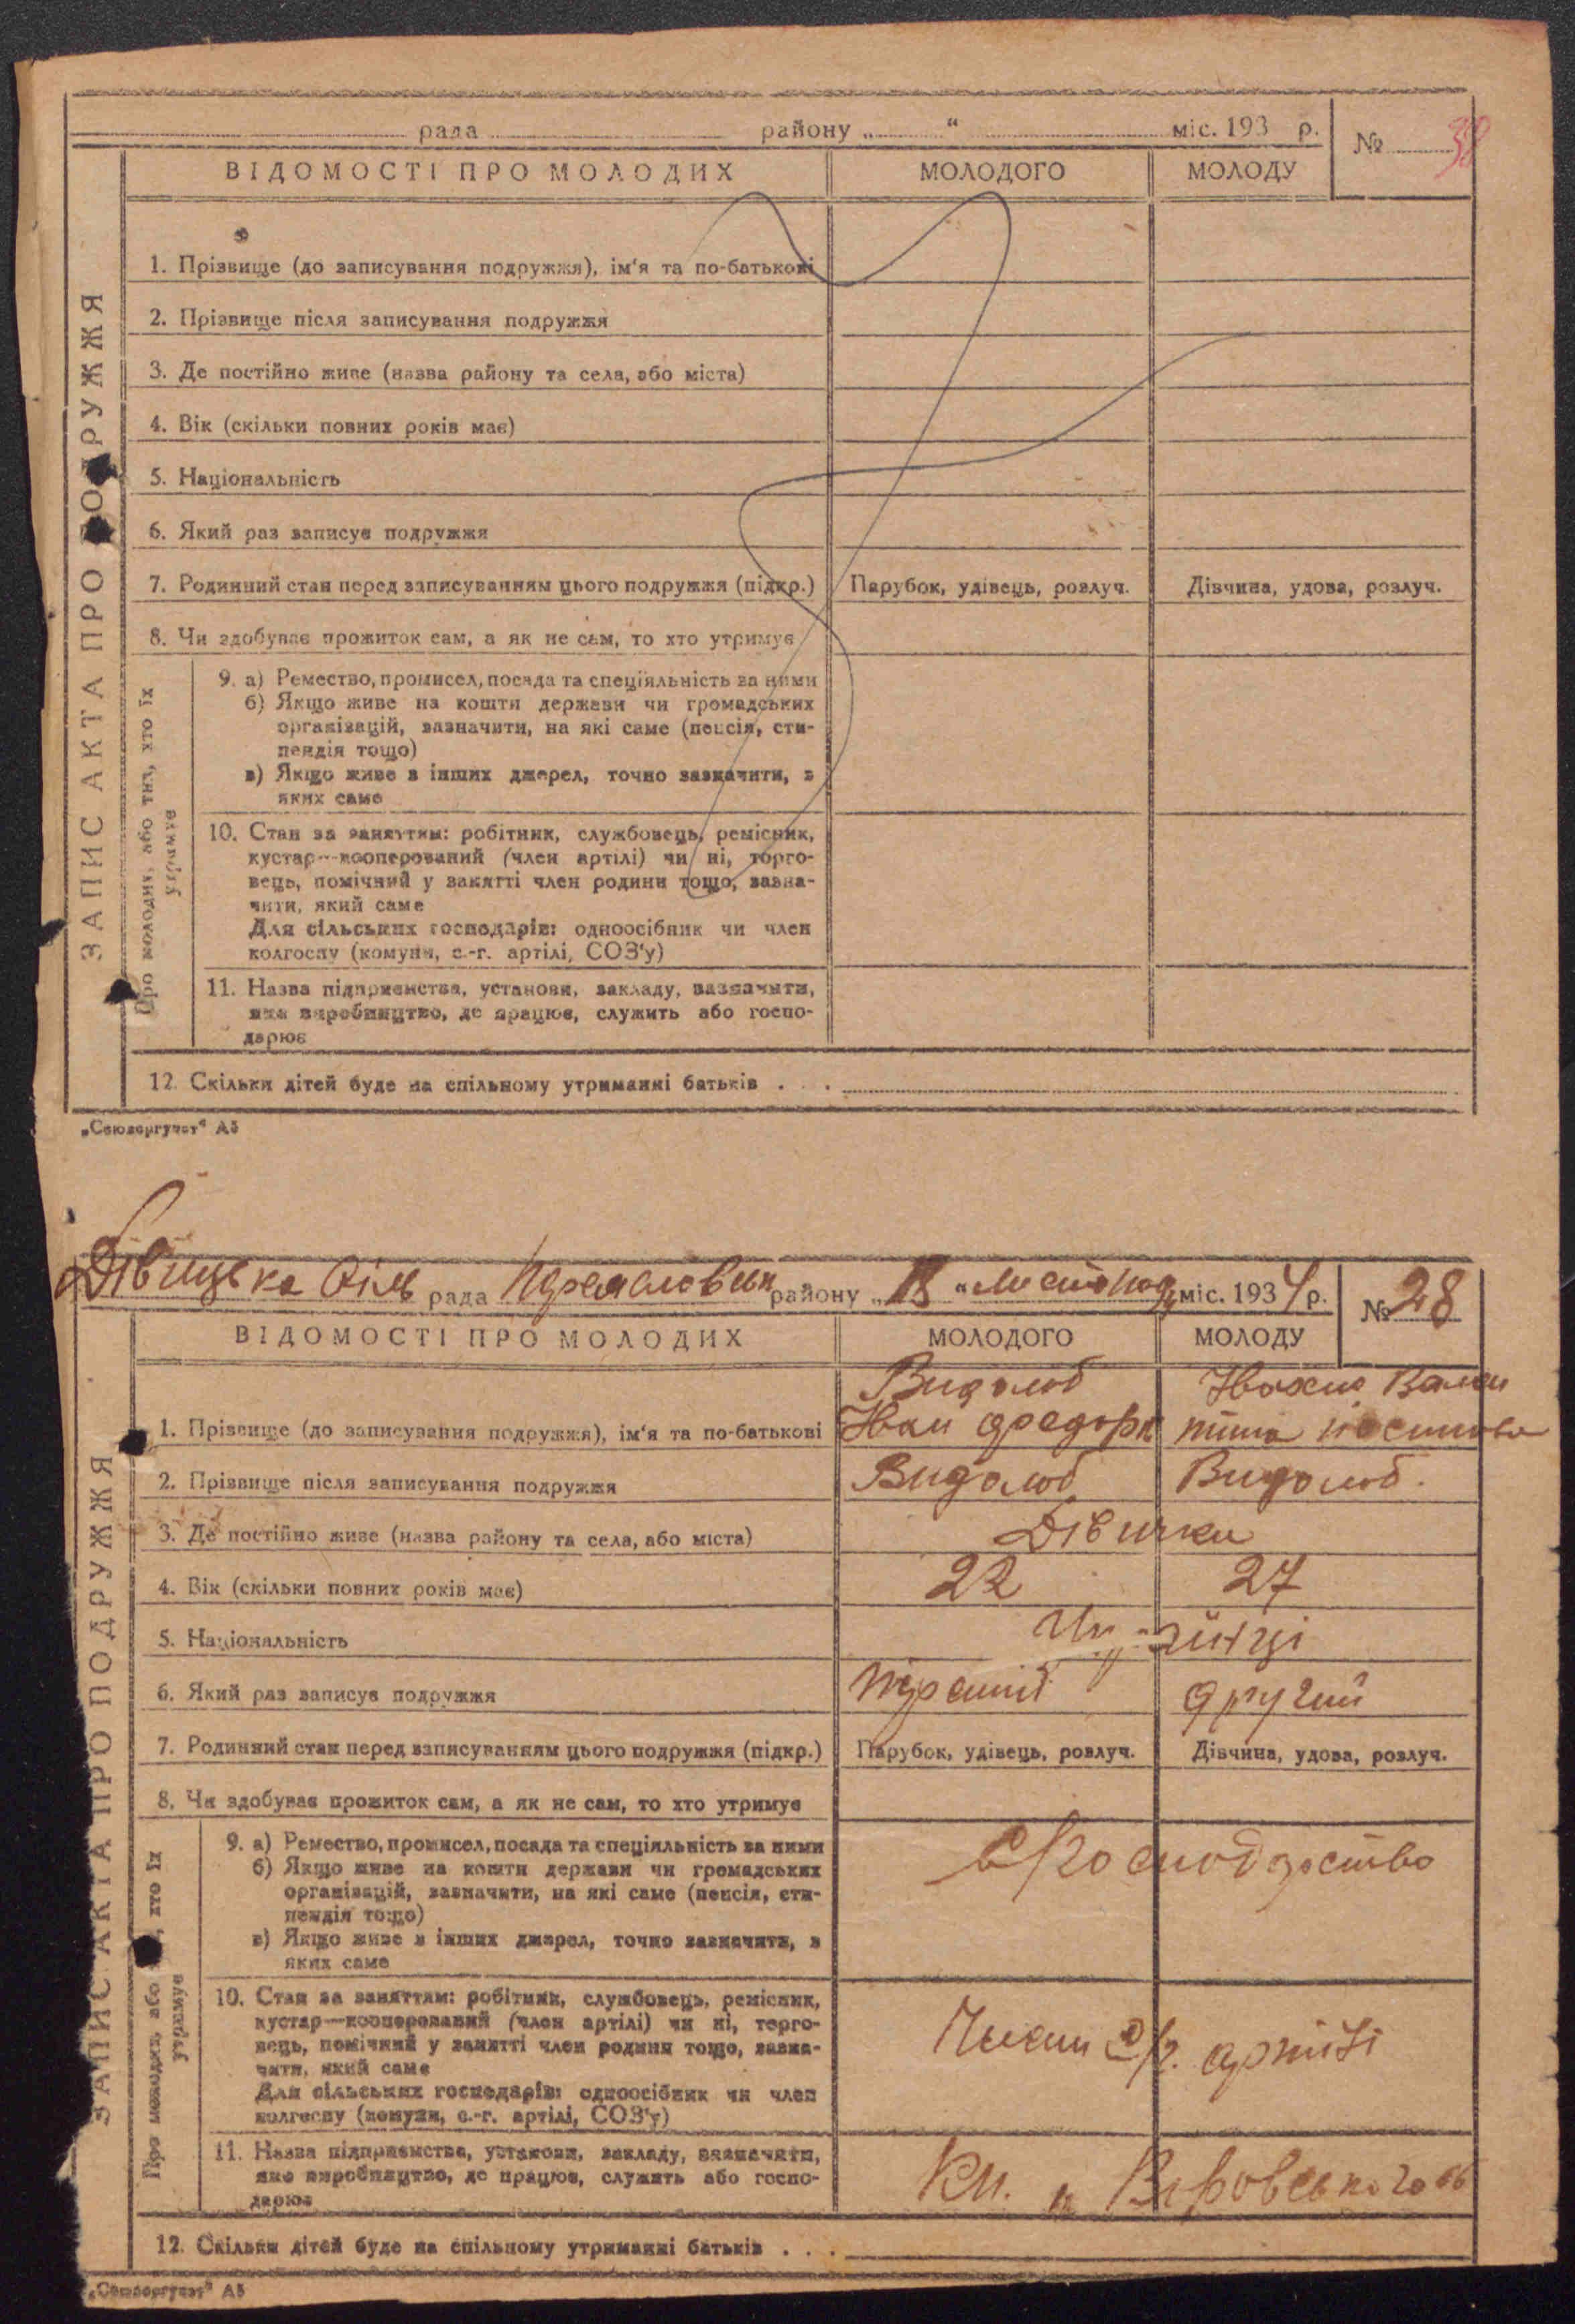 рада району „ “ міс. 193 р.
№ 38
ВІДОМОСТІ ПРО МОЛОДИХ МОЛОДОГО МОЛОДУ
ЗАПИС АКТА ПРО ПОДРУЖЖЯ
1. Прізвище (до записування подружжя), ім'я та по-батькові
2. Прізвище після записування подружжя
3. Де постійно живе (назва району та села, або міста)
4. Вік (скільки повних років має)
5. Національність
6. Який раз записує подружжя
7. Родинний стан перед записуванням цього подружжя (підкр.) Парубок, удівець, розлуч. Дівчина, удова, розлуч.
8. Чи здобуває прожиток сам, а як не сам, то хто утримує
Про молодих, або тих, хто їх
утримує
9. а) Ремество, промисел, посада та спеціяльність за ними
б) Якщо живе на кошти держави чи громадських
організацій, зазначити, на які саме (пенсія, сти-
пендія тощо)
в) Якщо живе з інших джерел, точно зазначити, з
яких саме
10. Стан за заняттям: робітник, службовець, ремісник,
кустар—кооперований (член артілі) чи ні, торго-
вець, помічний у занятті член родини тощо, зазна-
чити, який саме
Для сільських господарів: одноосібник чи член
колгоспу (комуни, с.-г. артілі, СОЗ'у)
11. Назва підприємства, установи, закладу, зазначити,
яке виробництво, де працює, служить або госпо-
дарює
12. Скільки дітей буде на спільному утриманні батьків . . .
„Союзоргучет“ А5
Дівицька Сіль рада району „18 “ міс. 1934 р.
№ 28
ВІДОМОСТІ ПРО МОЛОДИХ МОЛОДОГО МОЛОДУ
ЗАПИС АКТА ПРО ПОДРУЖЖЯ
Видолоб
1. Прізвище (до записування подружжя), ім'я та по-батькові Іван Федорв
2. Прізвище після записування подружжя Видолоб Видолоб.
3. Де постійно живе (назва району та села, або міста) Дівички
4. Вік (скільки повних років має) 22 27
5. Національність Українці
6. Який раз записує подружжя перший другий
7. Родинний стан перед записуванням цього подружжя (підкр.) Парубок, удівець, розлуч. Дівчина, удова, розлуч.
8. Чи здобуває прожиток сам, а як не сам, то хто утримує
Про молодих, або , хто їх
утримує
9. а) Ремество, промисел, посада та спеціяльність за ними с/господарство
б) Якщо живе на кошти держави чи громадських
організацій, зазначити, на які саме (пенсія, сти-
пендія тощо)
в) Якщо живе з інших джерел, точно зазначити, з
яких саме
10. Стан за заняттям: робітник, службовець, ремісник,
кустар—кооперований (член артілі) чи ні, торго-
вець, помічний у занятті член родини тощо, зазна- Члени с/г. артілі
чити, який саме
Для сільських господарів: одноосібник чи член
колгоспу (комуни, с.-г. артілі, СОЗ'у)
11. Назва підприємства, установи, закладу, зазначити,
яке виробництво, де працює, служить або госпо-
дарює
12. Скільки дітей буде на спільному утриманні батьків . . .
„Союзоргучет“ А5